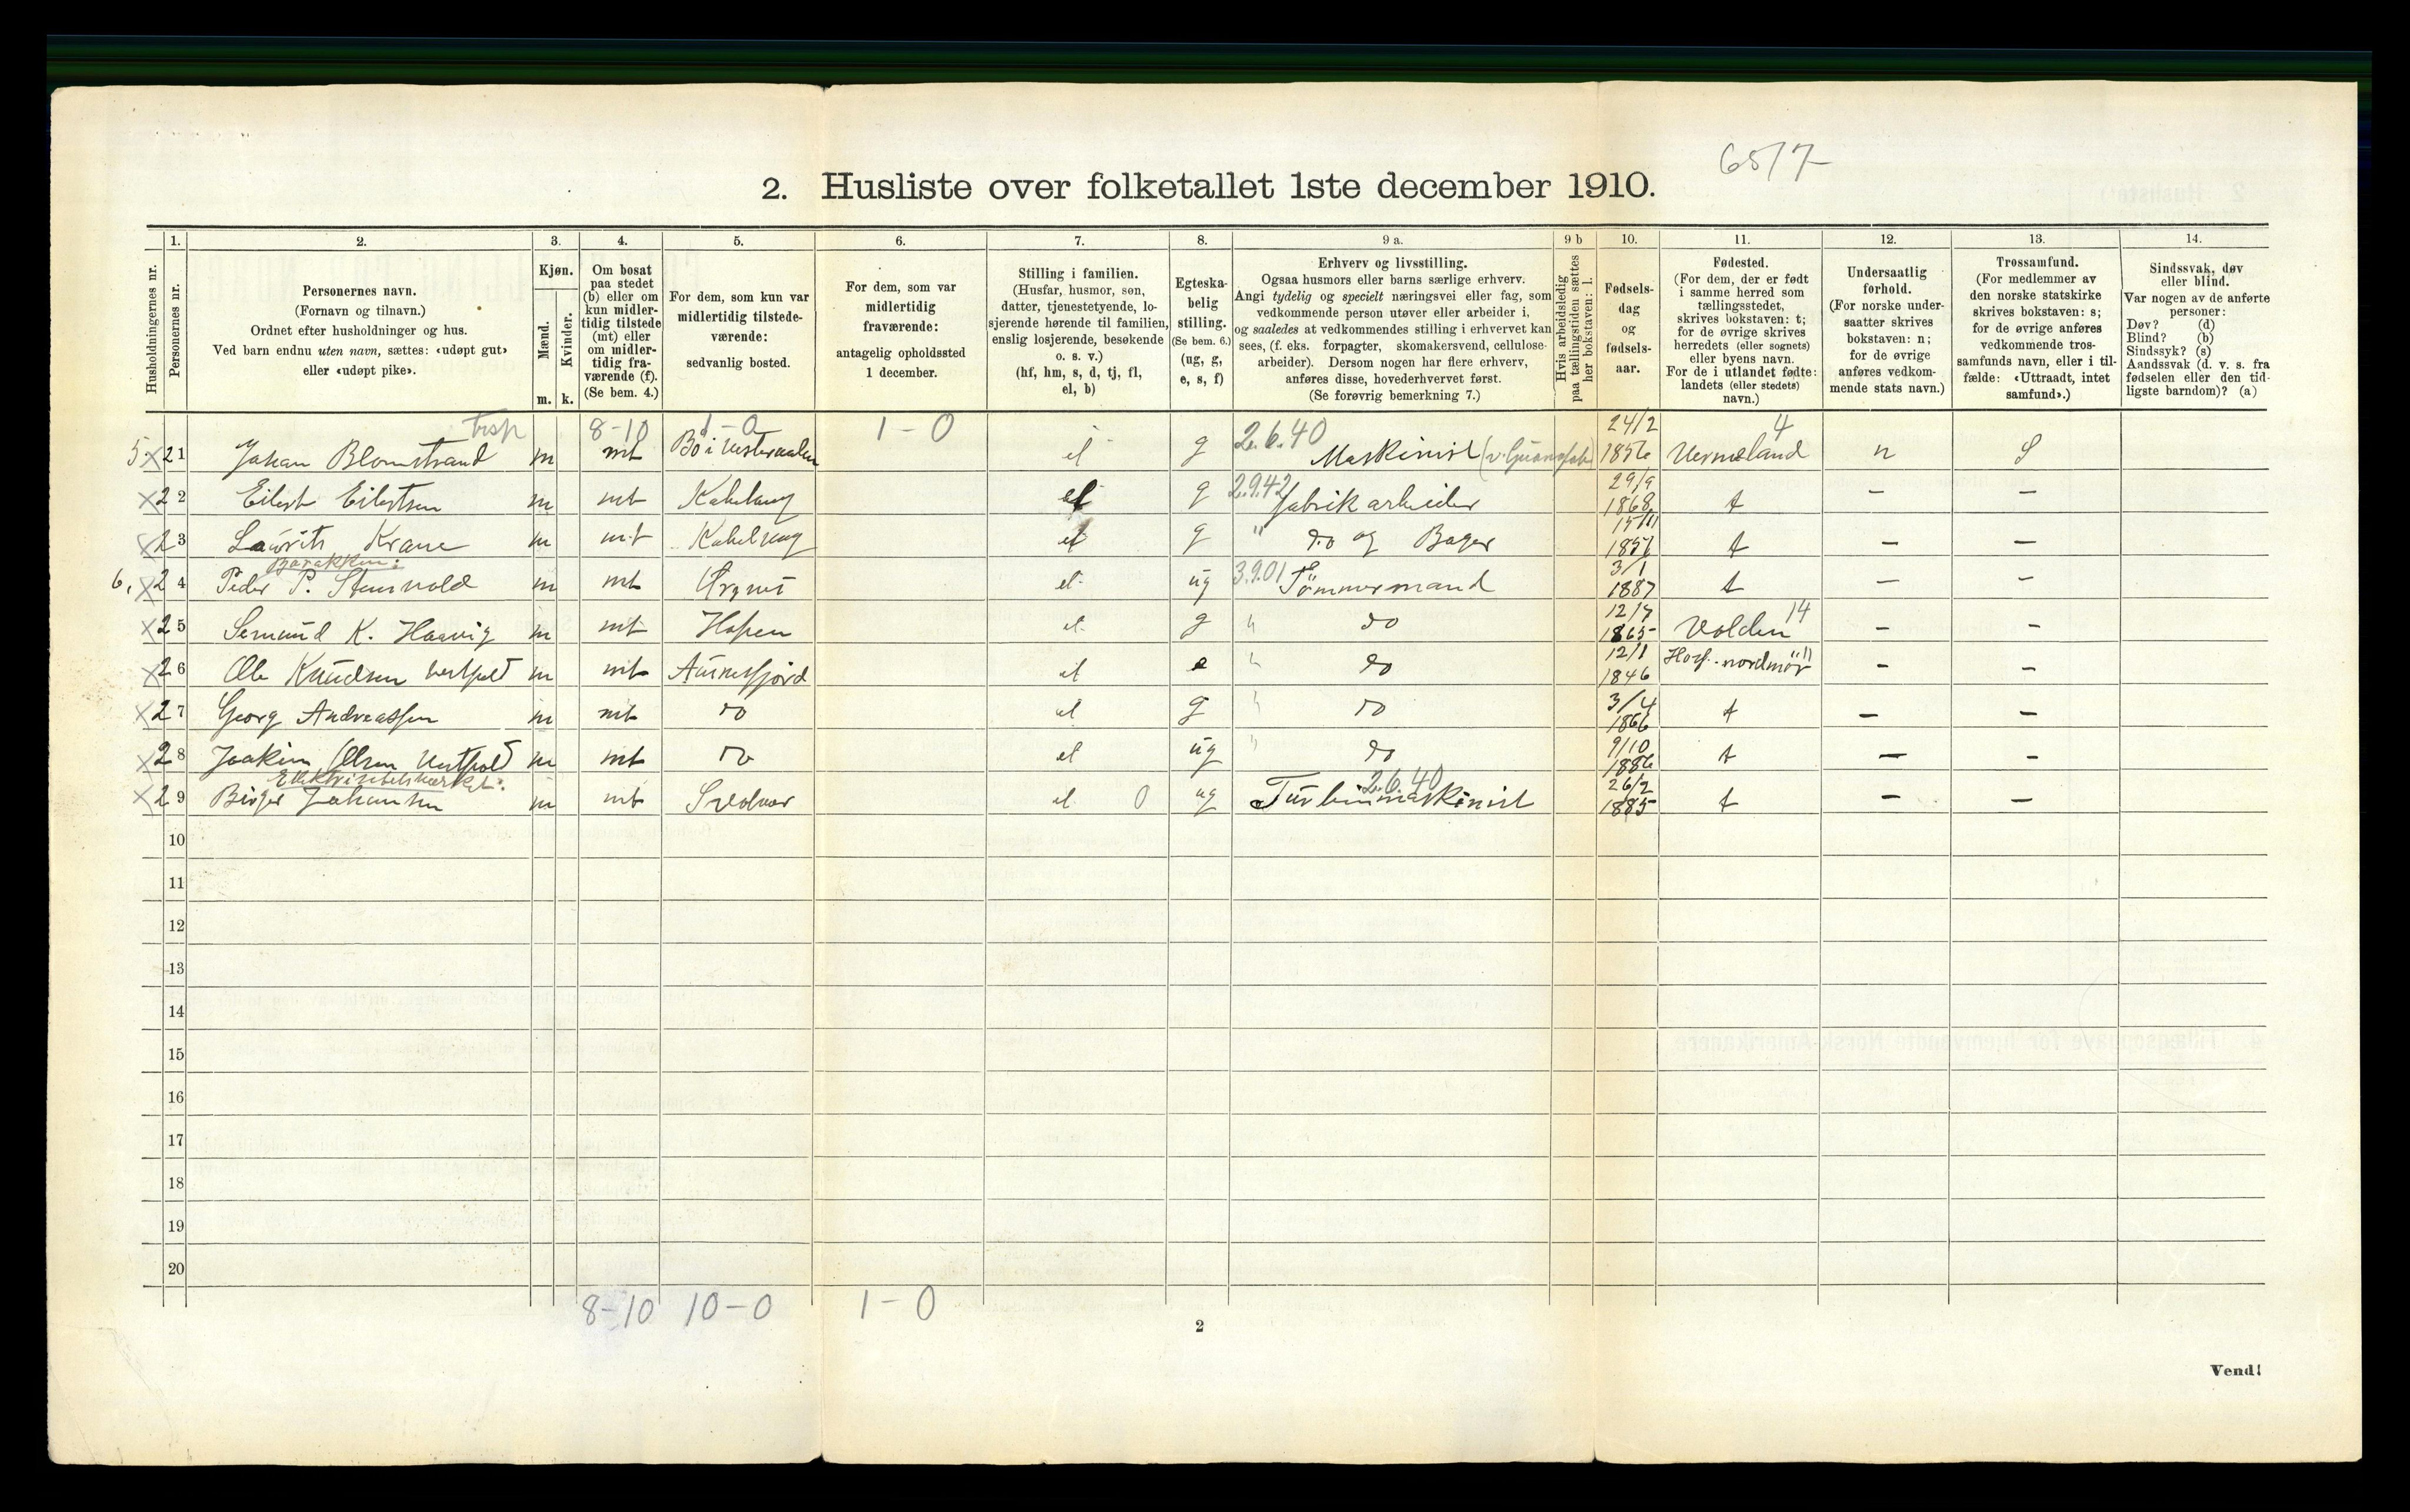 6517
2. Husliste over folketallet 1ste december 1910.
Husholdningernes nr.
1. Personernes nr.
2. Personernes navn.
(Fornavn og tilnavn.)
Ordnet efter husholdninger og hus.
Ved barn endnu uten navn, sættes: «udøpt gut»
eller «udøpt pike».
3. Kjøn.
Mænd. Kvinder.
m. k.
4. Om bosat
paa stedet
(b) eller om
kun midler-
tidig tilstede
(mt) eller
om midler-
tidig fra-
værende (f).
(Se bem. 4.)
5. For dem, som kun var
midlertidig tilstede-
værende:
sedvanlig bosted.
6. For dem, som var
midlertidig
fraværende:
antagelig opholdssted
1 december.
7. Stilling i familien.
(Husfar, husmor, søn,
datter, tjenestetyende, lo-
sjerende hørende til familien,
enslig losjerende, besøkende
o. s. v.)
(hf, hm, s, d, tj, fl,
el, b)
8. Egteska-
belig
stilling.
(Se bem. 6.)
(ug, g,
e, s, f)
9 a. Erhverv og livsstilling.
Ogsaa husmors eller barns særlige erhverv.
Angi tydelig og specielt næringsvei eller fag, som
vedkommende person utøver eller arbeider i,
og saaledes at vedkommendes stilling i erhvervet kan
sees, (f. eks. forpagter, skomakersvend, cellulose-
arbeider). Dersom nogen har flere erhverv,
anføres disse, hovederhvervet først.
(Se forøvrig bemerkning 7.)
9 b Hvis arbeidsledig
paa tællingstiden sættes
her bokstaven: l.
10. Fødsels-
dag
og
fødsels-
aar.
11. Fødested.
(For dem, der er født
i samme herred som
tællingsstedet,
skrives bokstaven: t;
for de øvrige skrives
herredets (eller sognets)
eller byens navn.
For de i utlandet fødte:
landets (eller stedets)
navn.)
12. Undersaatlig
forhold.
(For norske under-
saatter skrives
bokstaven: n;
for de øvrige
anføres vedkom-
mende stats navn.)
13. Trossamfund.
(For medlemmer av
den norske statskirke
skrives bokstaven: s;
for de øvrige anføres
vedkommende tros-
samfunds navn, eller i til-
fælde: «Uttraadt, intet
samfund».)
14. Sindssvak, døv
eller blind.
Var nogen av de anførte
personer:
Døv? (d)
Blind? (b)
Sindssyk? (s)
Aandssvak (d. v. s. fra
fødselen eller den tid-
ligste barndom)? (a)
8-10 1-0 1-0 2.6.40 24/2 4
5 x 21 Johan Blomstrand m mt Bö i Vesteraalen el g Maskinist 1856 Vermeland n S
x 22 Eilert Eilertsen m mt Kabelvaag el g 2.9.42 fabrikarbeider 29/9 1868 t — —
x 23 Laurits Krane m mt Kabelvaag el g " do og Bager 1851 t — —
Barakken:
6. x 24 Peder P. Stenvold m mt el ug 3.9.01 Tömmermand 3/1 1887 t — —
x 25 K. m mt Hopen el g " do 12/7 1865 Volden 14 — —
x 26 Ole Knudsen m mt Aursfjord el e " do 12/1 1846 nordmör — —
x 27 Georg Andreassen m mt do el g " do 3/4 1866 t — —
x 28 Joakim Olsen m mt do el ug " do 9/10 1886 t — —
Elektricitetsverket:
x 29 Birger Johansen m mt Svolvær el 0 ug 2.6.40 Turbinmaskinist 26/2 1885 t — —
10
11
12
13
14
15
16
17
18
19
20
8-10 10-0 1-0
2
Vend!